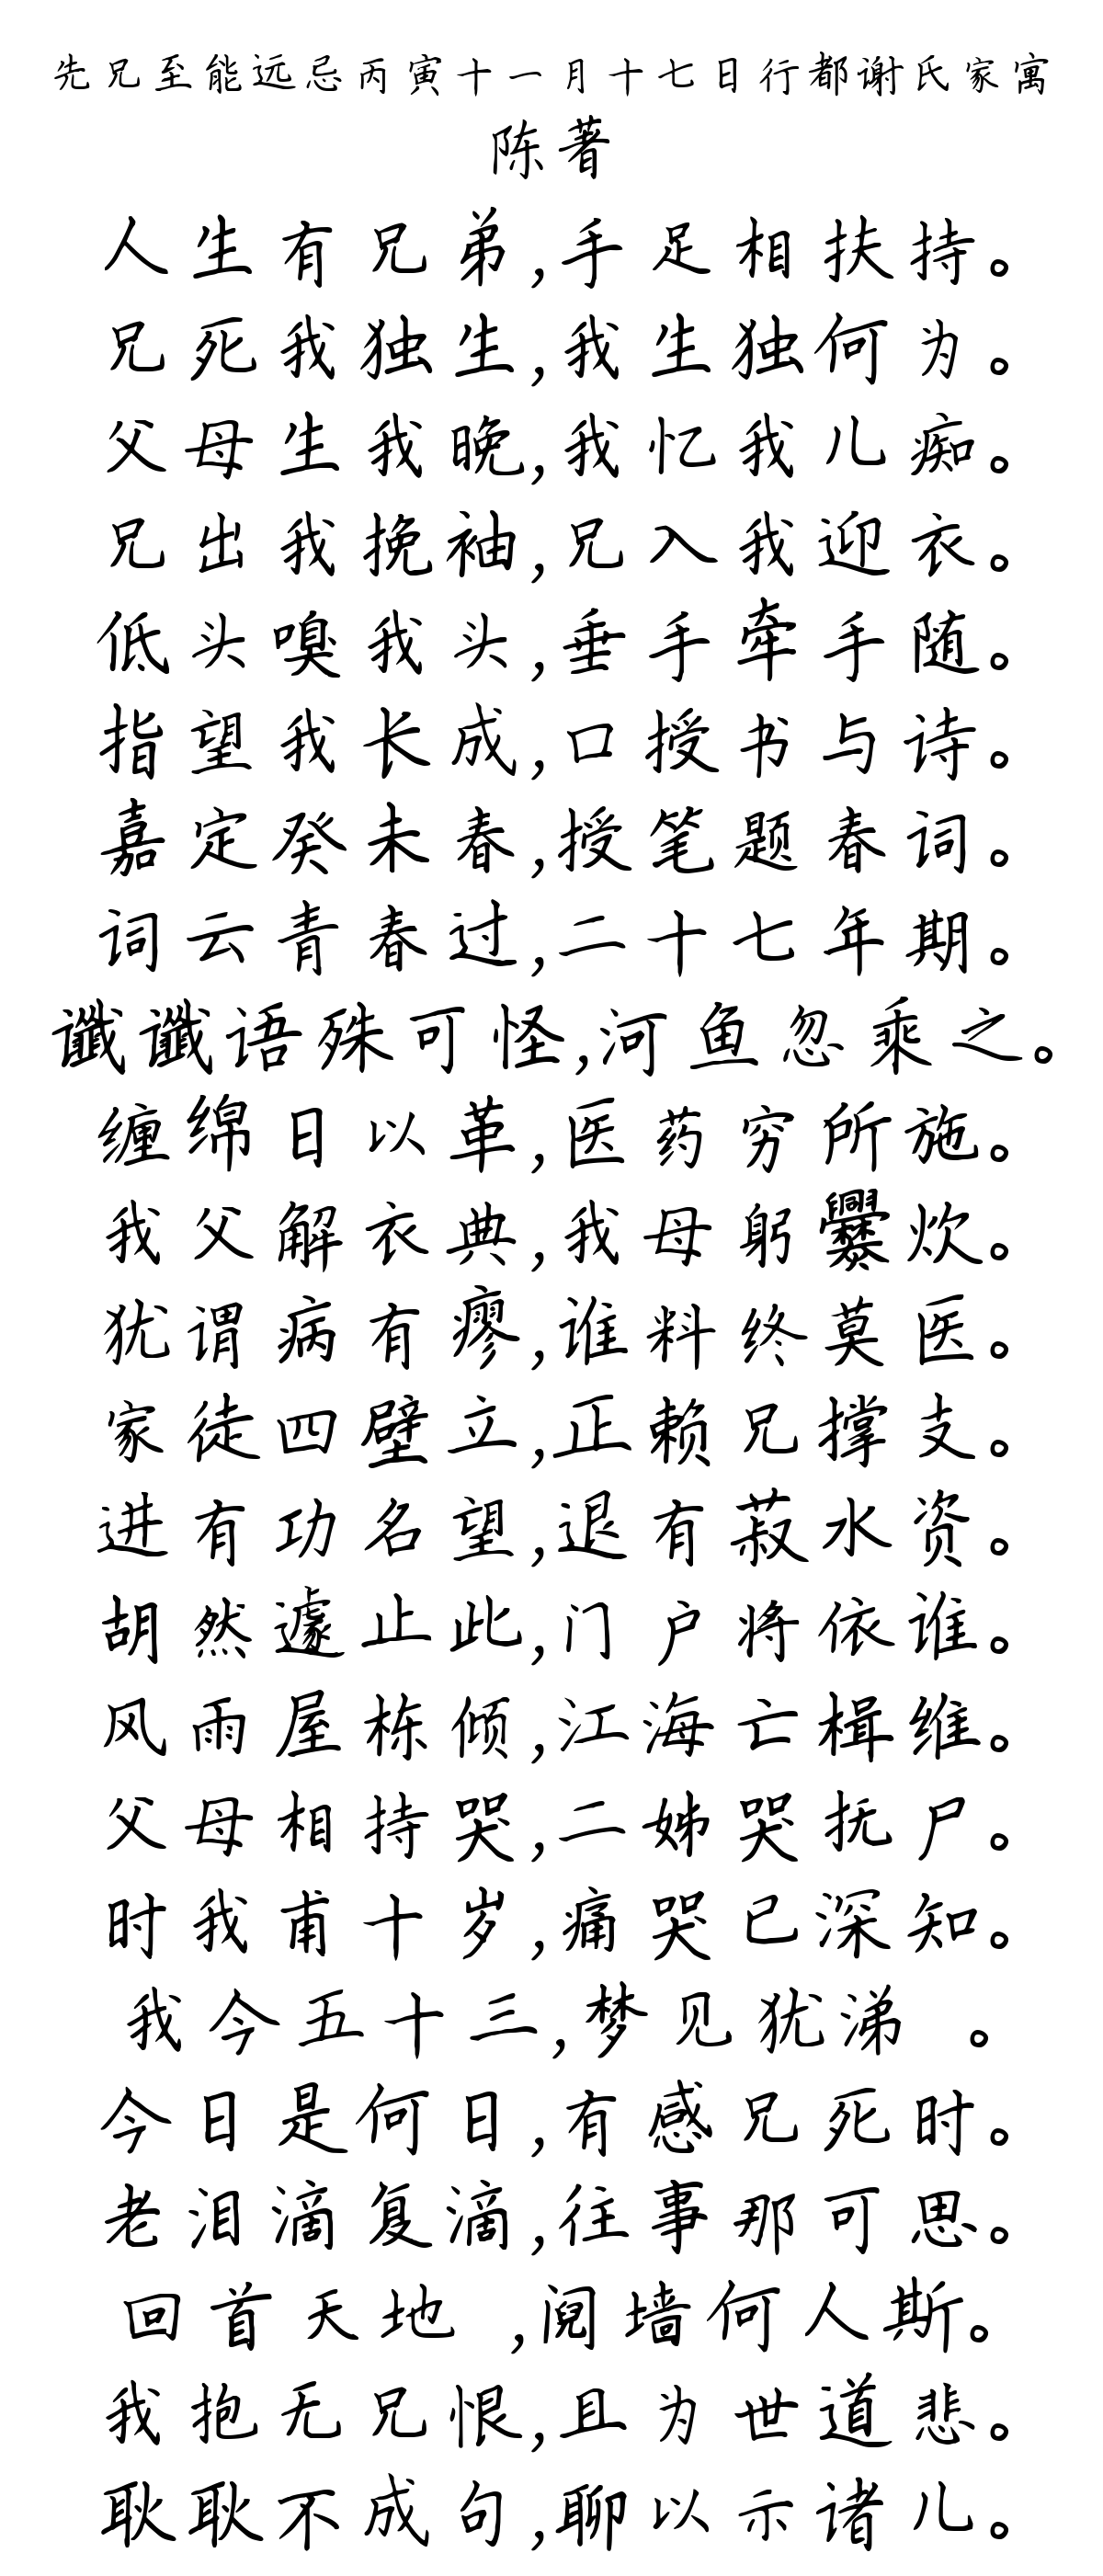 先兄至能远忌丙寅十一月十七日行都谢氏家寓
陈著
人生有兄弟,手足相扶持。
兄死我独生,我生独何为。
父母生我晚,我忆我儿痴。
兄出我挽袖,兄入我迎衣。
低头嗅我头,垂手牵手随。
指望我长成,口授书与诗。
嘉定癸未春,授笔题春词。
词云青春过,二十七年期。
谶谶语殊可怪,河鱼忽乘之。
缠绵日以革,医药穷所施。
我父解衣典,我母躬爨炊。
犹谓病有瘳,谁料终莫医。
家徒四壁立,正赖兄撑支。
进有功名望,退有菽水资。
胡然遽止此,门户将依谁。
风雨屋栋倾,江海亡楫维。
父母相持哭,二姊哭抚尸。
时我甫十岁,痛哭已深知。
我今五十三,梦见犹涕 。
今日是何日,有感兄死时。
老泪滴复滴,往事那可思。
回首天地 ,阋墙何人斯。
我抱无兄恨,且为世道悲。
耿耿不成句,聊以示诸儿。